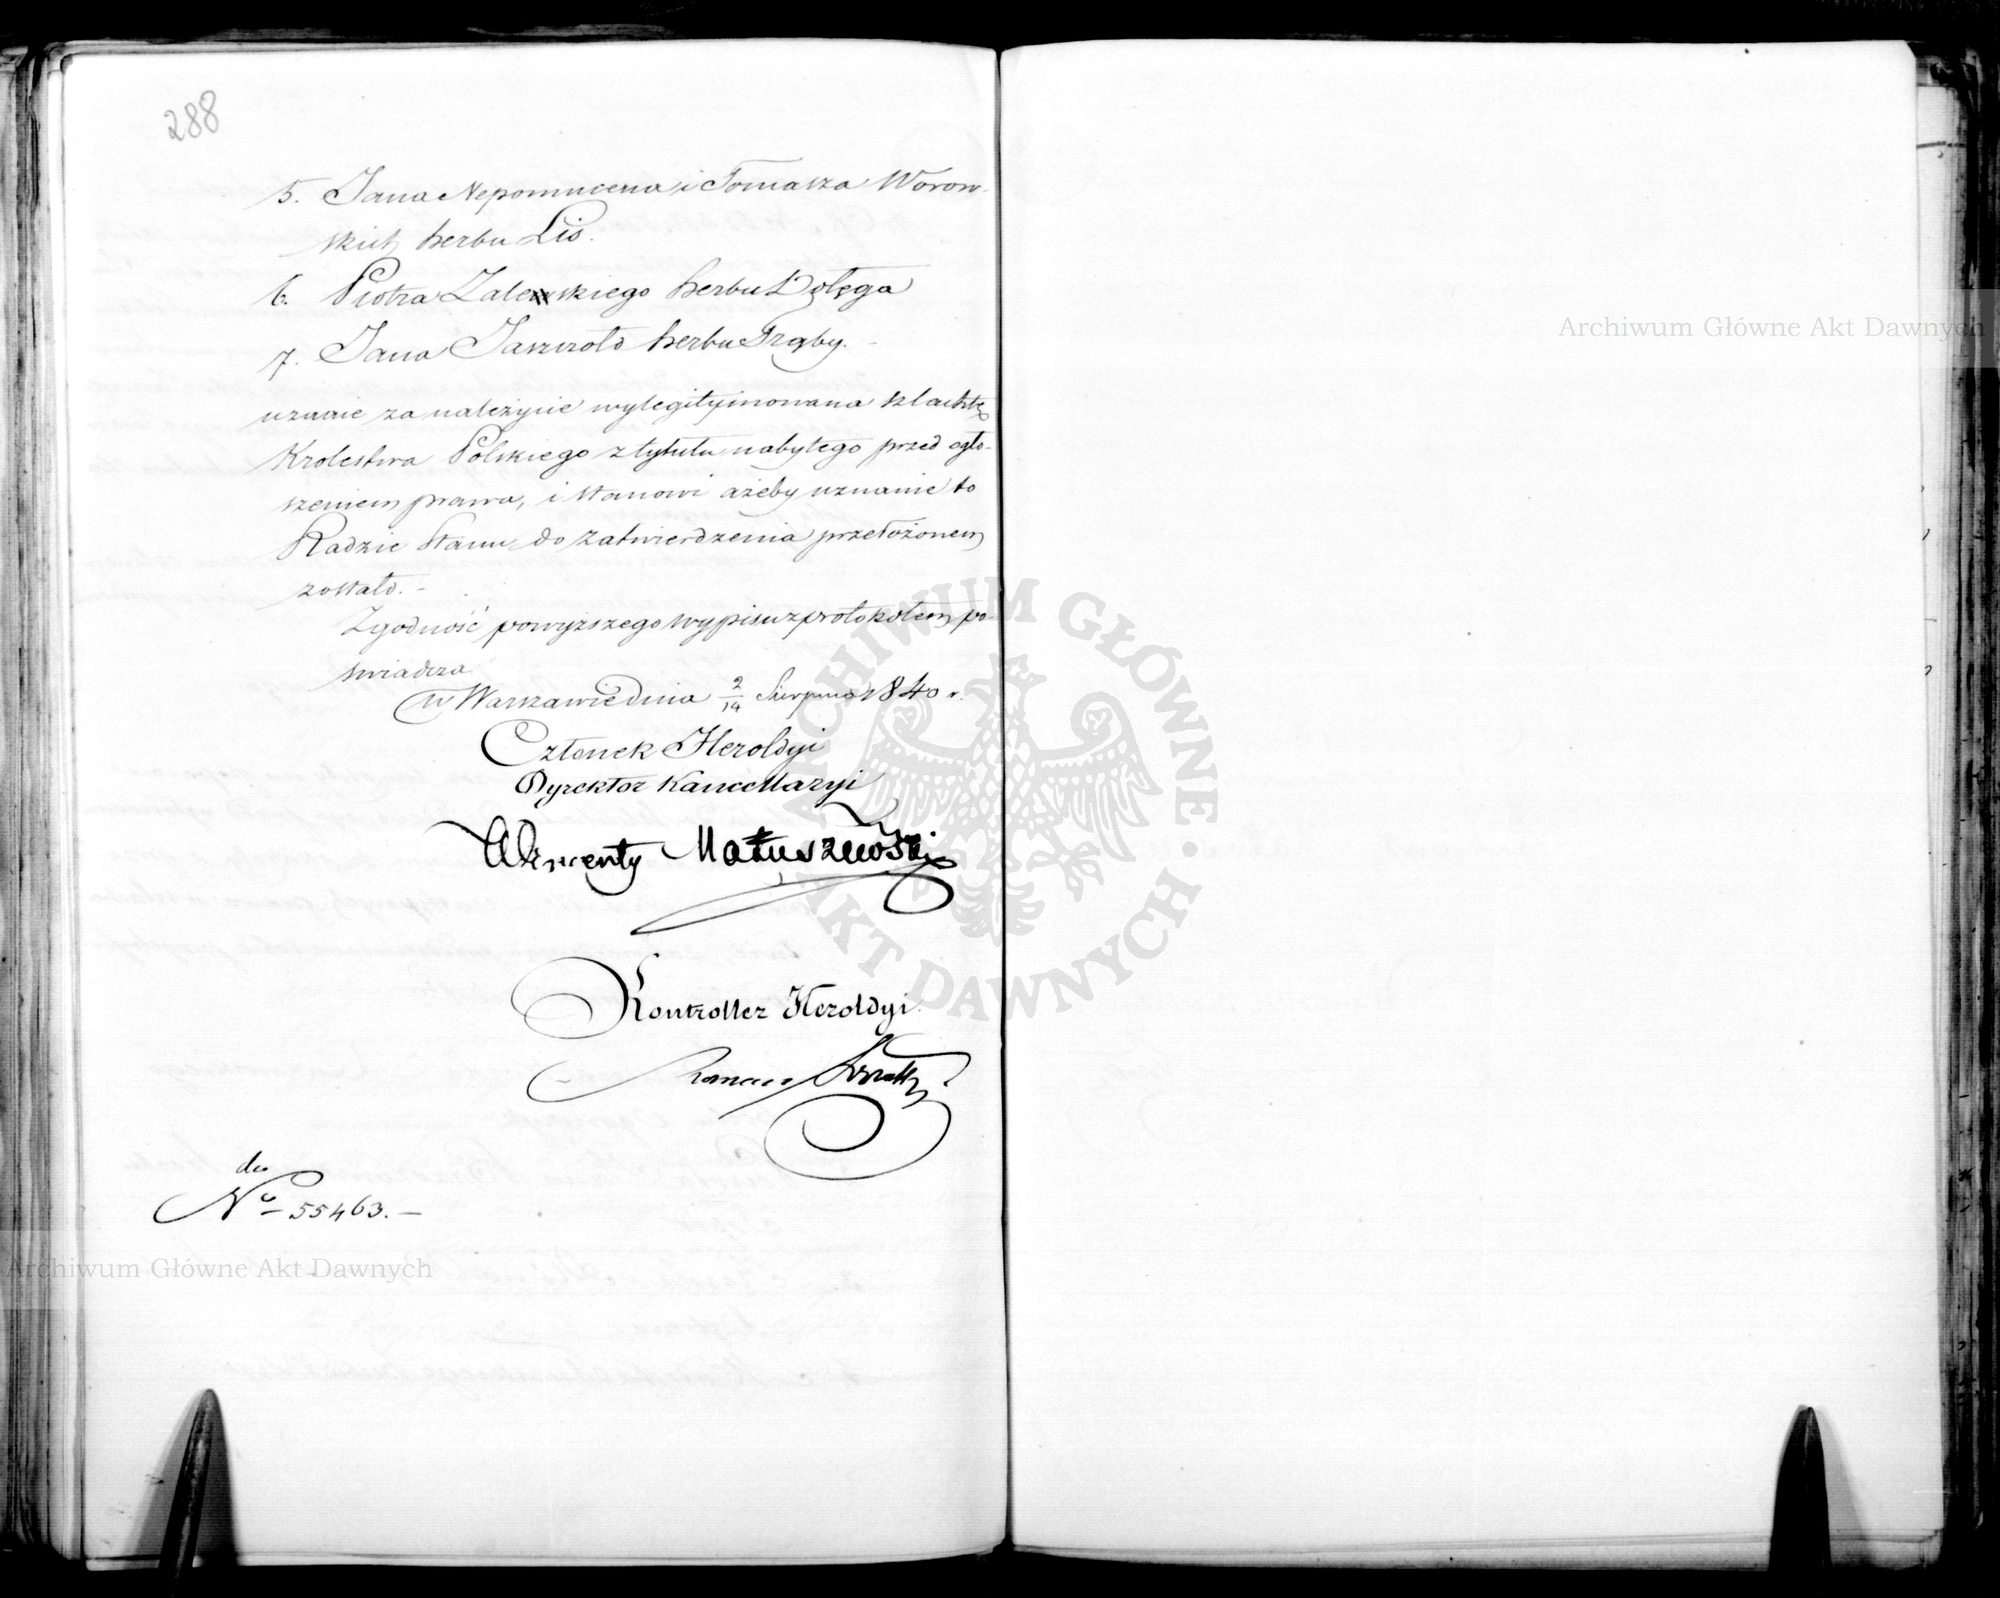 288
5. Jana Nepomucena i Tomasza Worow-
skich herbu Lis.
6. Piotra Zalewskiego herbu Dołęga
7. Jana Jaszczołd herbu Trąby. -
uznaie za należycie wylegitymowana szlachtę
Krolestwa Polskiego z tytułu nabytego przed ogło-
szeniem prawa, i stanowi ażeby uznanie to
Radzie Stanu do zatwierdzenia przełożonem
zostało. -
Zgodność powyższego wypisu z protokołem po-
swiadcza
w Warszawie dnia 2/14 Sierpnia 1840 r.
Członek Heroldyi
Dyrektor Kancellaryi
Wincenty Matuszewski
Kontroller Heroldyi.
Roman
du
No 55463. -
Archiwum Główne Akt Dawnych
Archiwum Główne Akt Dawnych
ARCHIWUM GŁÓWNE • AKT DAWNYCH •